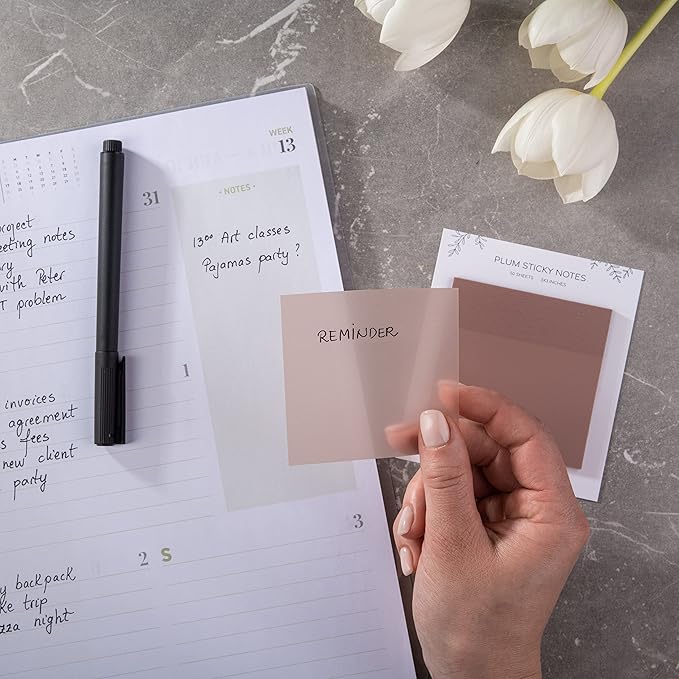 WEEK
13
31
· NOTES ·
13⁰⁰ Art classes
Pajamas party ?
project
eeting notes
with Peter
problem
REMINDER
PLUM STICKY NOTES
50 SHEETS 3X3 INCHES
1
invoices
agreement
fees
new client
party
2 S
3
backpack
trip
night